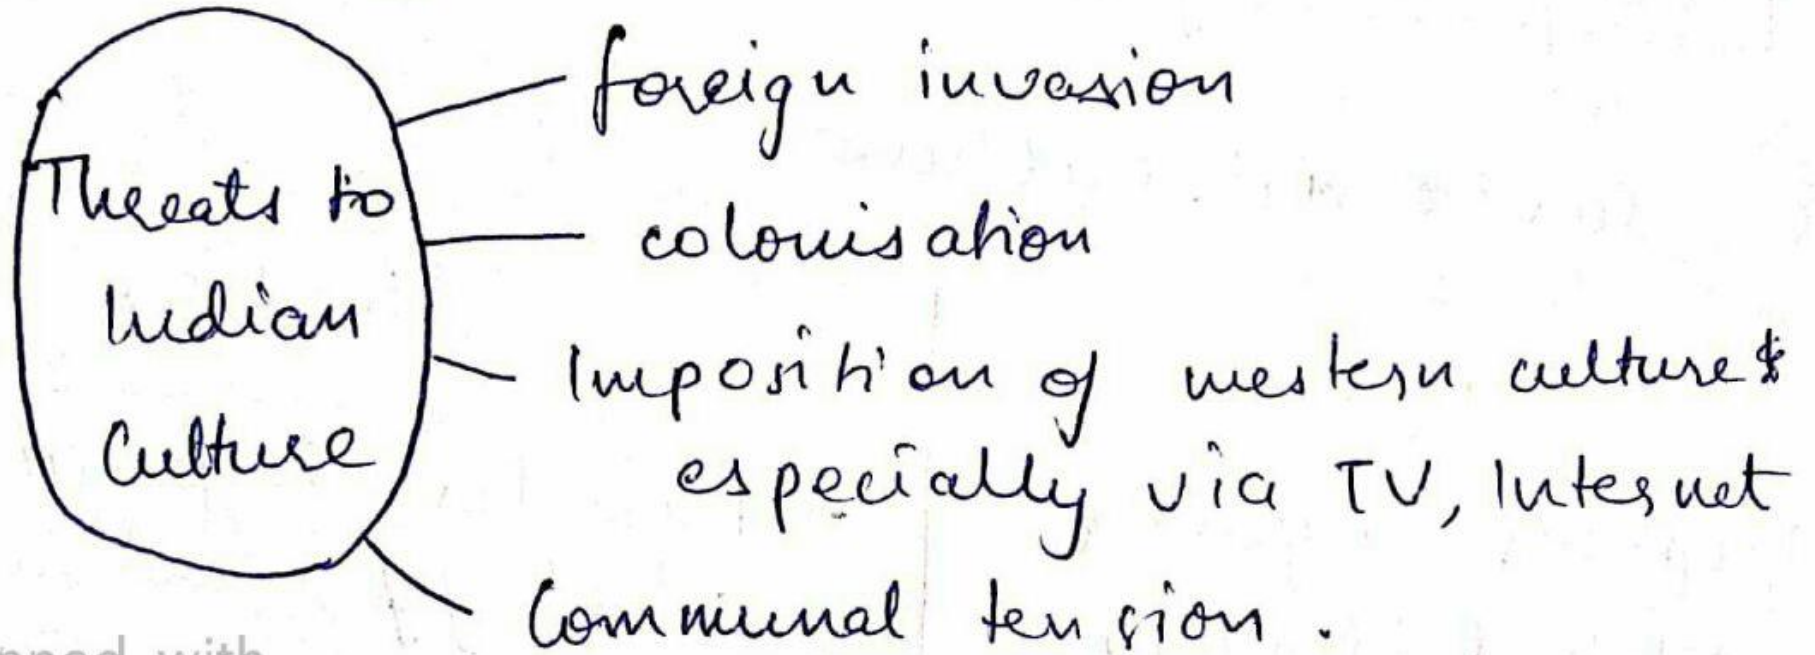 Threats to
Indian
Culture
foreign invasion
colonisation
Imposition of western culture
especially via TV, Internet
Communal tension.